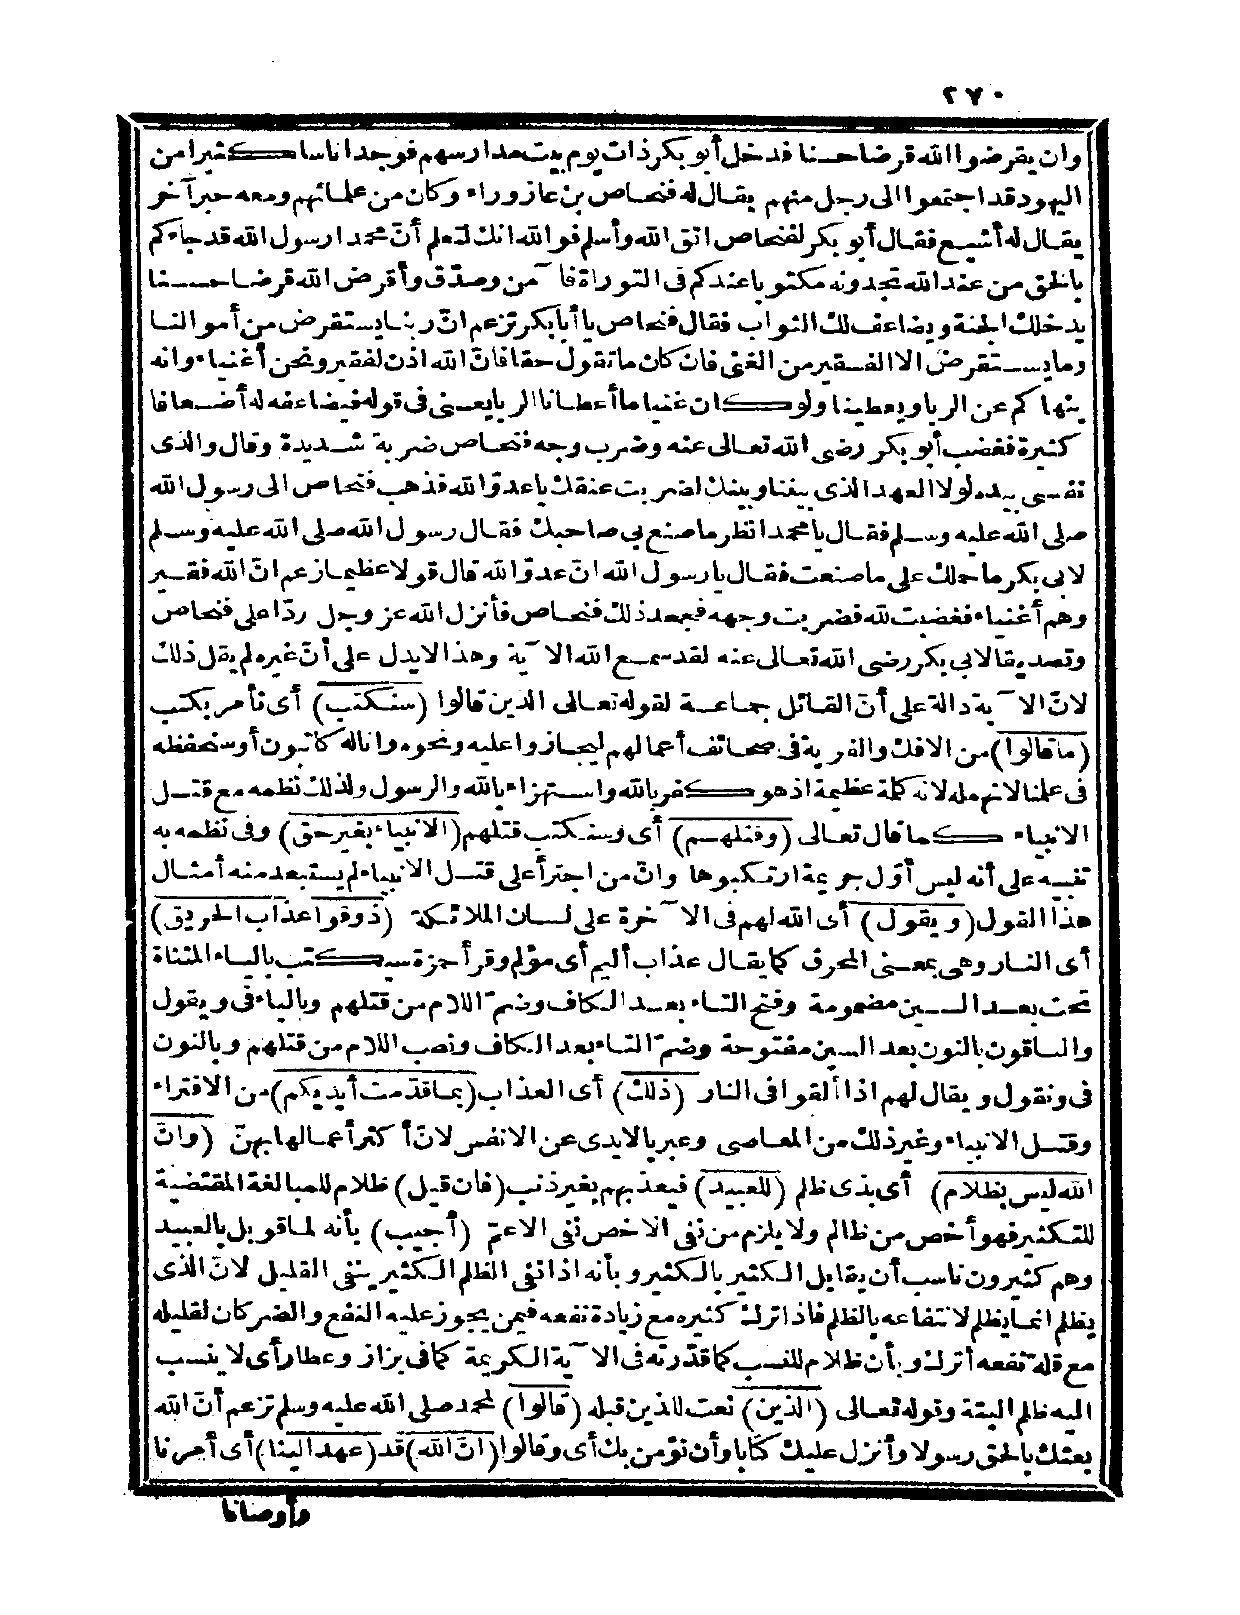 ٢٧٠
وان يقرضوا الله قرضا حسنا فدخل أبو بكر ذات يوم بيت مدارسهم فوجد اناسا كثيرا من
اليهود قد اجتمعوا الى رجل منهم يقال له فنحاص بن عازوراء وكان من علمائهم ومعه حبر آخر
يقال له أشيع فقال أبو بكر لفنحاص اتق الله وأسلم فوالله انك لتعلم أنّ محمدا رسول الله قد جاءكم
بالحق من عند الله تجدونه مكتوبا عندكم فى التوراة فآمن وصدّق وأقرض الله قرضا حسنا
يدخلك الجنة ويضاعف لك الثواب فقال فنحاص يا أبا بكر تزعم انّ ربنا يستقرض من أموالنا
وما يستقرض الا الفقير من الغنى فان كان ما تقول حقا فانّ الله اذن لفقير ونحن أغنياء وانه
ينهاكم عن الربا ويعطينا ولو كان غنيا ما أعطانا الربا يعنى فى قوله فيضاعفه له أضعافا
كثيرة فغضب أبو بكر رضى الله تعالى عنه وضرب وجه فنحاص ضربة شديدة وقال والذى
نفسى بيده لولا العهد الذى بيننا وبينك لضربت عنقك يا عدوّ الله فذهب فنحاص الى رسول الله
صلى الله عليه وسلم فقال يا محمد انظر ما صنع بى صاحبك فقال رسول الله صلى الله عليه وسلم
لابى بكر ما حملك على ما صنعت فقال يا رسول الله انّ عدوّ الله قال قولا عظيما زعم انّ الله فقير
وهم أغنياء فغضبت لله فضربت وجهه فجحد ذلك فنحاص فأنزل الله عز وجل ردّا على فنحاص
وتصديقا لابى بكر رضى الله تعالى عنه لقد سمع الله الآية وهذا لا يدل على أنّ غيره لم يقل ذلك
لانّ الآية دالة على أنّ القائل جماعة لقوله تعالى الذين قالوا (سنكتب) أى نأمر بكتب
(ما قالوا) من الافك والفرية فى صحائف أعمالهم ليجازوا عليه ونحوه وانا له كاتبون أو سنحفظه
فى علمنا لا نهمله لانه كلمة عظيمة اذ هو كفر بالله واستهزاء بالله والرسول ولذلك نظمه مع قتل
الانبياء كما قال تعالى (وقتلهم) أى وسنكتب قتلهم (الانبياء بغير حق) وفى نظمه به
تنبيه على أنه ليس أوّل جريمة ارتكبوها وانّ من اجترأ على قتل الانبياء لم يستبعد منه أمثال
هذا القول (ويقول) أى الله لهم فى الآخرة على لسان الملائكة (ذوقوا عذاب الحريق)
أى النار وهى بمعنى المحرق كما يقال عذاب أليم أى مؤلم وقرأ حمزة سيكتب بالياء المثناة
تحت بعد السين مضمومة وفتح التاء بعد الكاف وضمّ اللام من قتلهم وبالياء فى ويقول
والباقون بالنون بعد السين مفتوحة وضمّ التاء بعد الكاف ونصب اللام من قتلهم وبالنون
فى ونقول ويقال لهم اذا ألقوا فى النار (ذلك) أى العذاب (بما قدّمت أيديكم) من الافتراء
وقتل الانبياء وغير ذلك من المعاصى وعبر بالايدى عن الانفس لانّ أكثر أعمالها بهنّ (وانّ
الله ليس بظلام) أى بذى ظلم (للعبيد) فيعذبهم بغير ذنب (فان قيل) ظلام للمبالغة المقتضية
للتكثير فهو أخص من ظالم ولا يلزم من نفى الاخص نفى الاعمّ (أجيب) بأنه لما قوبل بالعبيد
وهم كثيرون ناسب أن يقابل الكثير بالكثير وبأنه اذا نفى الظلم الكثير ينفى القليل لانّ الذى
يظلم انما يظلم لانتفاعه بالظلم فاذا ترك كثيره مع زيادة نفعه فيمن يجوز عليه النفع والضر كان لقليله
مع قلة نفعه أترك وبأن ظلام للنسب كما قدّرته فى الآية الكريمة كما فى بزاز وعطار أى لا ينسب
اليه ظلم البتة وقوله تعالى (الذين) نعت للذين قبله (قالوا) لمحمد صلى الله عليه وسلم تزعم أنّ الله
بعثك بالحق رسولا وأنزل عليك كتابا وأن نؤمن بك أى وقالوا (انّ الله) قد (عهد الينا) أى أمرنا
وأوصانا